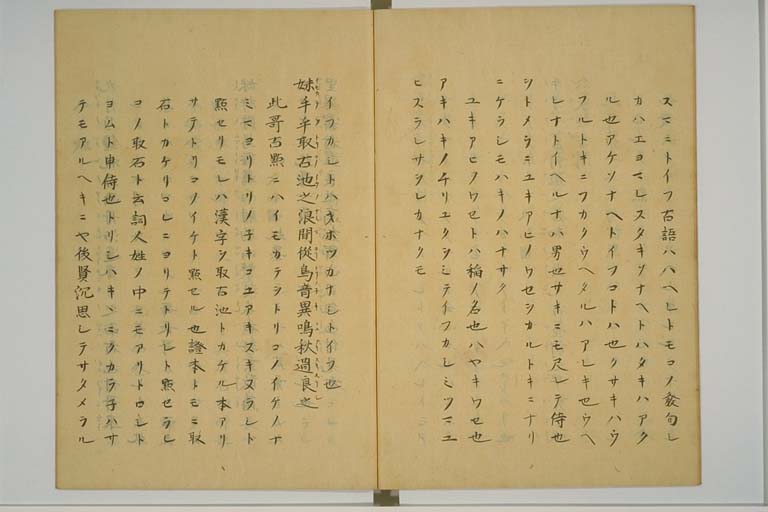 スマニトイフ古語ハハヘレトモコノ發句レ
カハエヨマレスタキソナヘトハタキハアク
ル也アケソナヘトイフコトハ也クサキハウ
フルトキニフカクウヘタルハアレキ也ウヘ
レナトイヘルナハ男女サキニモ尺レテ侍也
シトメラニユキアヒノワセシカルトキニナリ
ニケラシモハキノハナサク
ユキアヒノワセトハ稲ノ名也ハヤキワセ也
アキハキノチリユクシミテイフカレミツマユ
ヒスラレサシレカナクモ
イフカレトハオホツカナシトイフ也
妹手乎取石池之浪間從鳥音異鳴秋過良之
此哥古點ニハイモカテヲトリコノイケノナ
ミマヨリトリノ子キコユアキスキヌラレト
點セリモレハ漢字ヲ取古池トカケル本アリ
サテトリコノイケト點セル也證本トモニ取
石トカケリコレニヨリテトリレト點セラレ
コノ取石ト云詞人姓ノ中ニモアリトウシト
ヨムト申侍也トリシハキヽミクカラ子ハサ
テモアルヘキニヤ後賢沉思レテサタメラル